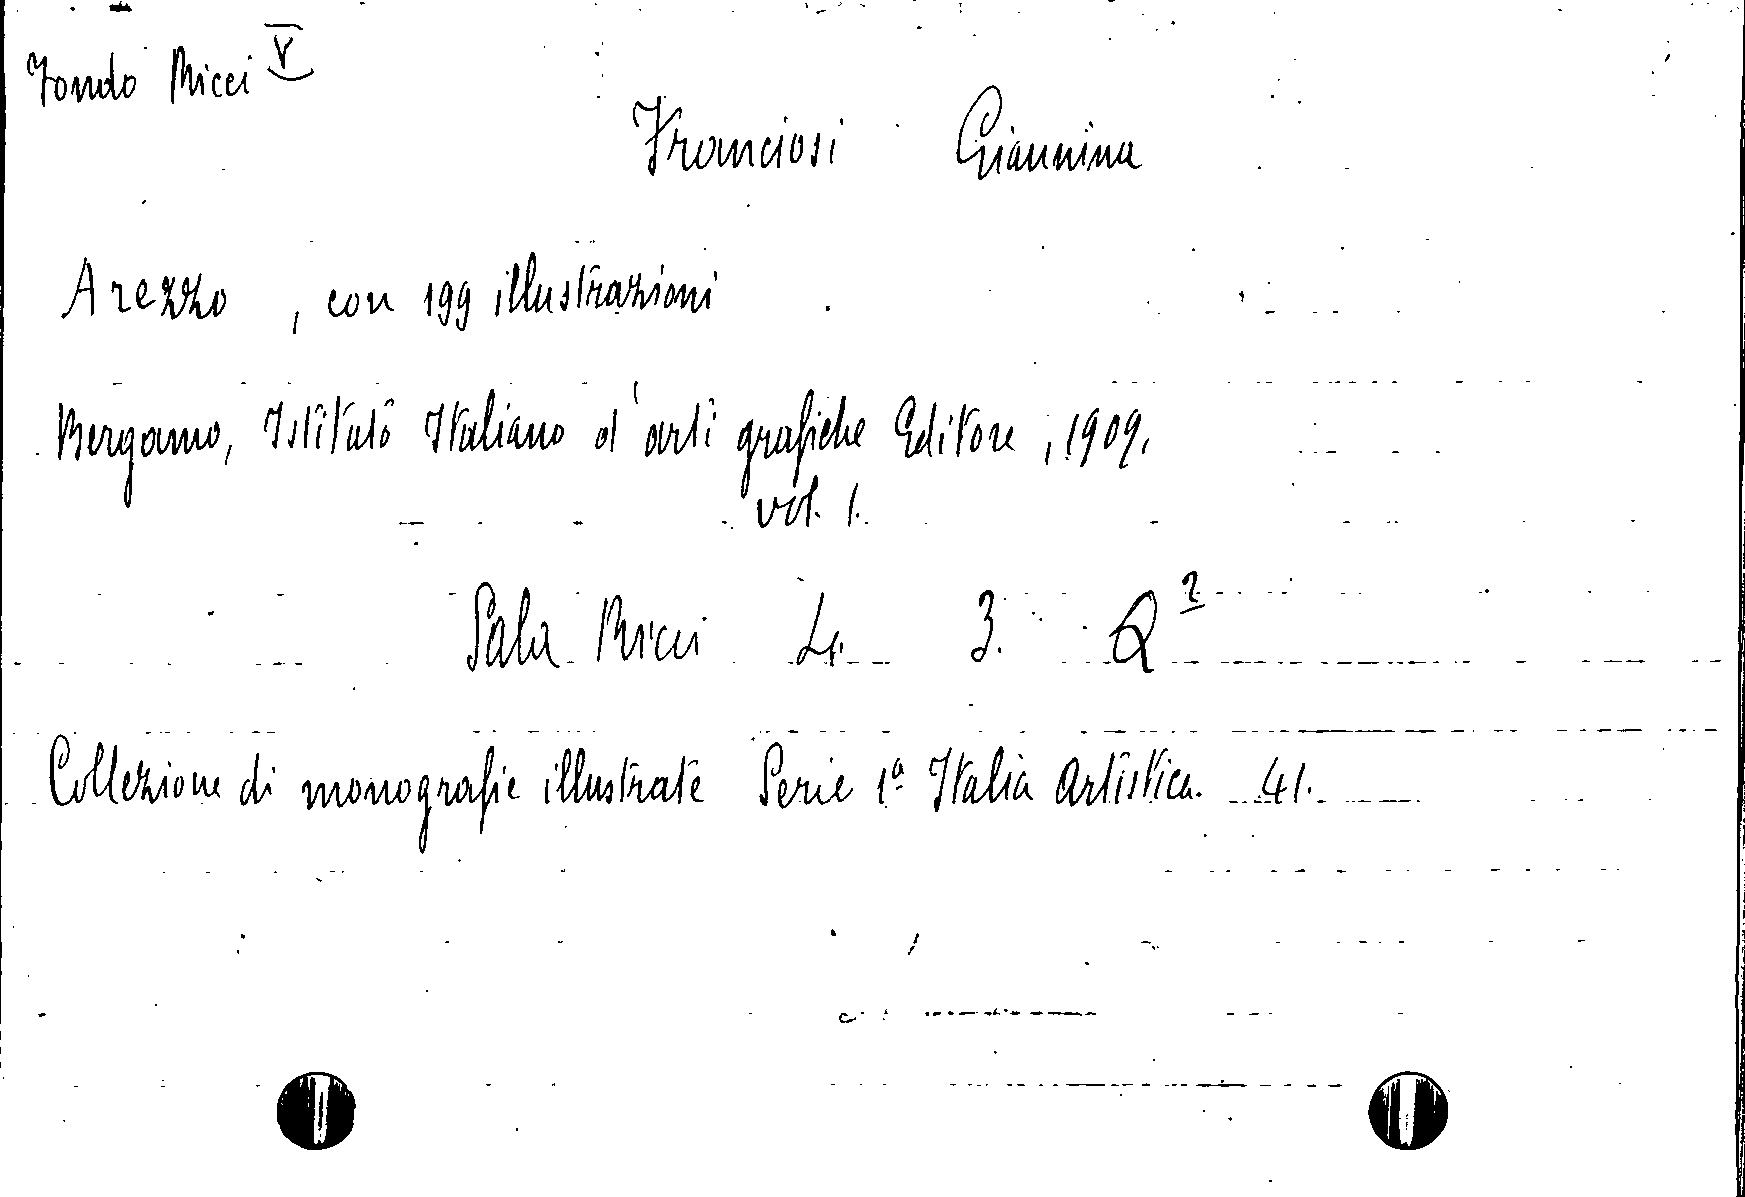 Fondo Ricci V
Franciosi Giannina
Arezzo , con 199 illustrazioni
Bergamo, Istituto Italiano d'arti grafiche Editore, 1909.
vol. 1.
Sala Ricci L. 3. Q²
Collezione di monografie illustrate Serie 1ª Italia Artistica. 41.